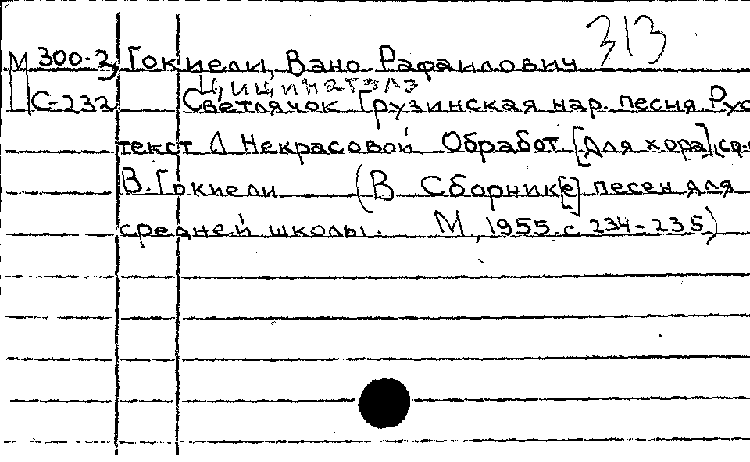 313
М 300-3 Гокиели, Вано Рафаилович
Ц С-232 Цицинатэлэ
Светлячок Грузинская нар. песня Рус
текст Л Некрасовой Обработ [Для хора]
В. Гокиели (В Сборник[е] песен для
средней школы. М, 1955. с 234-235)